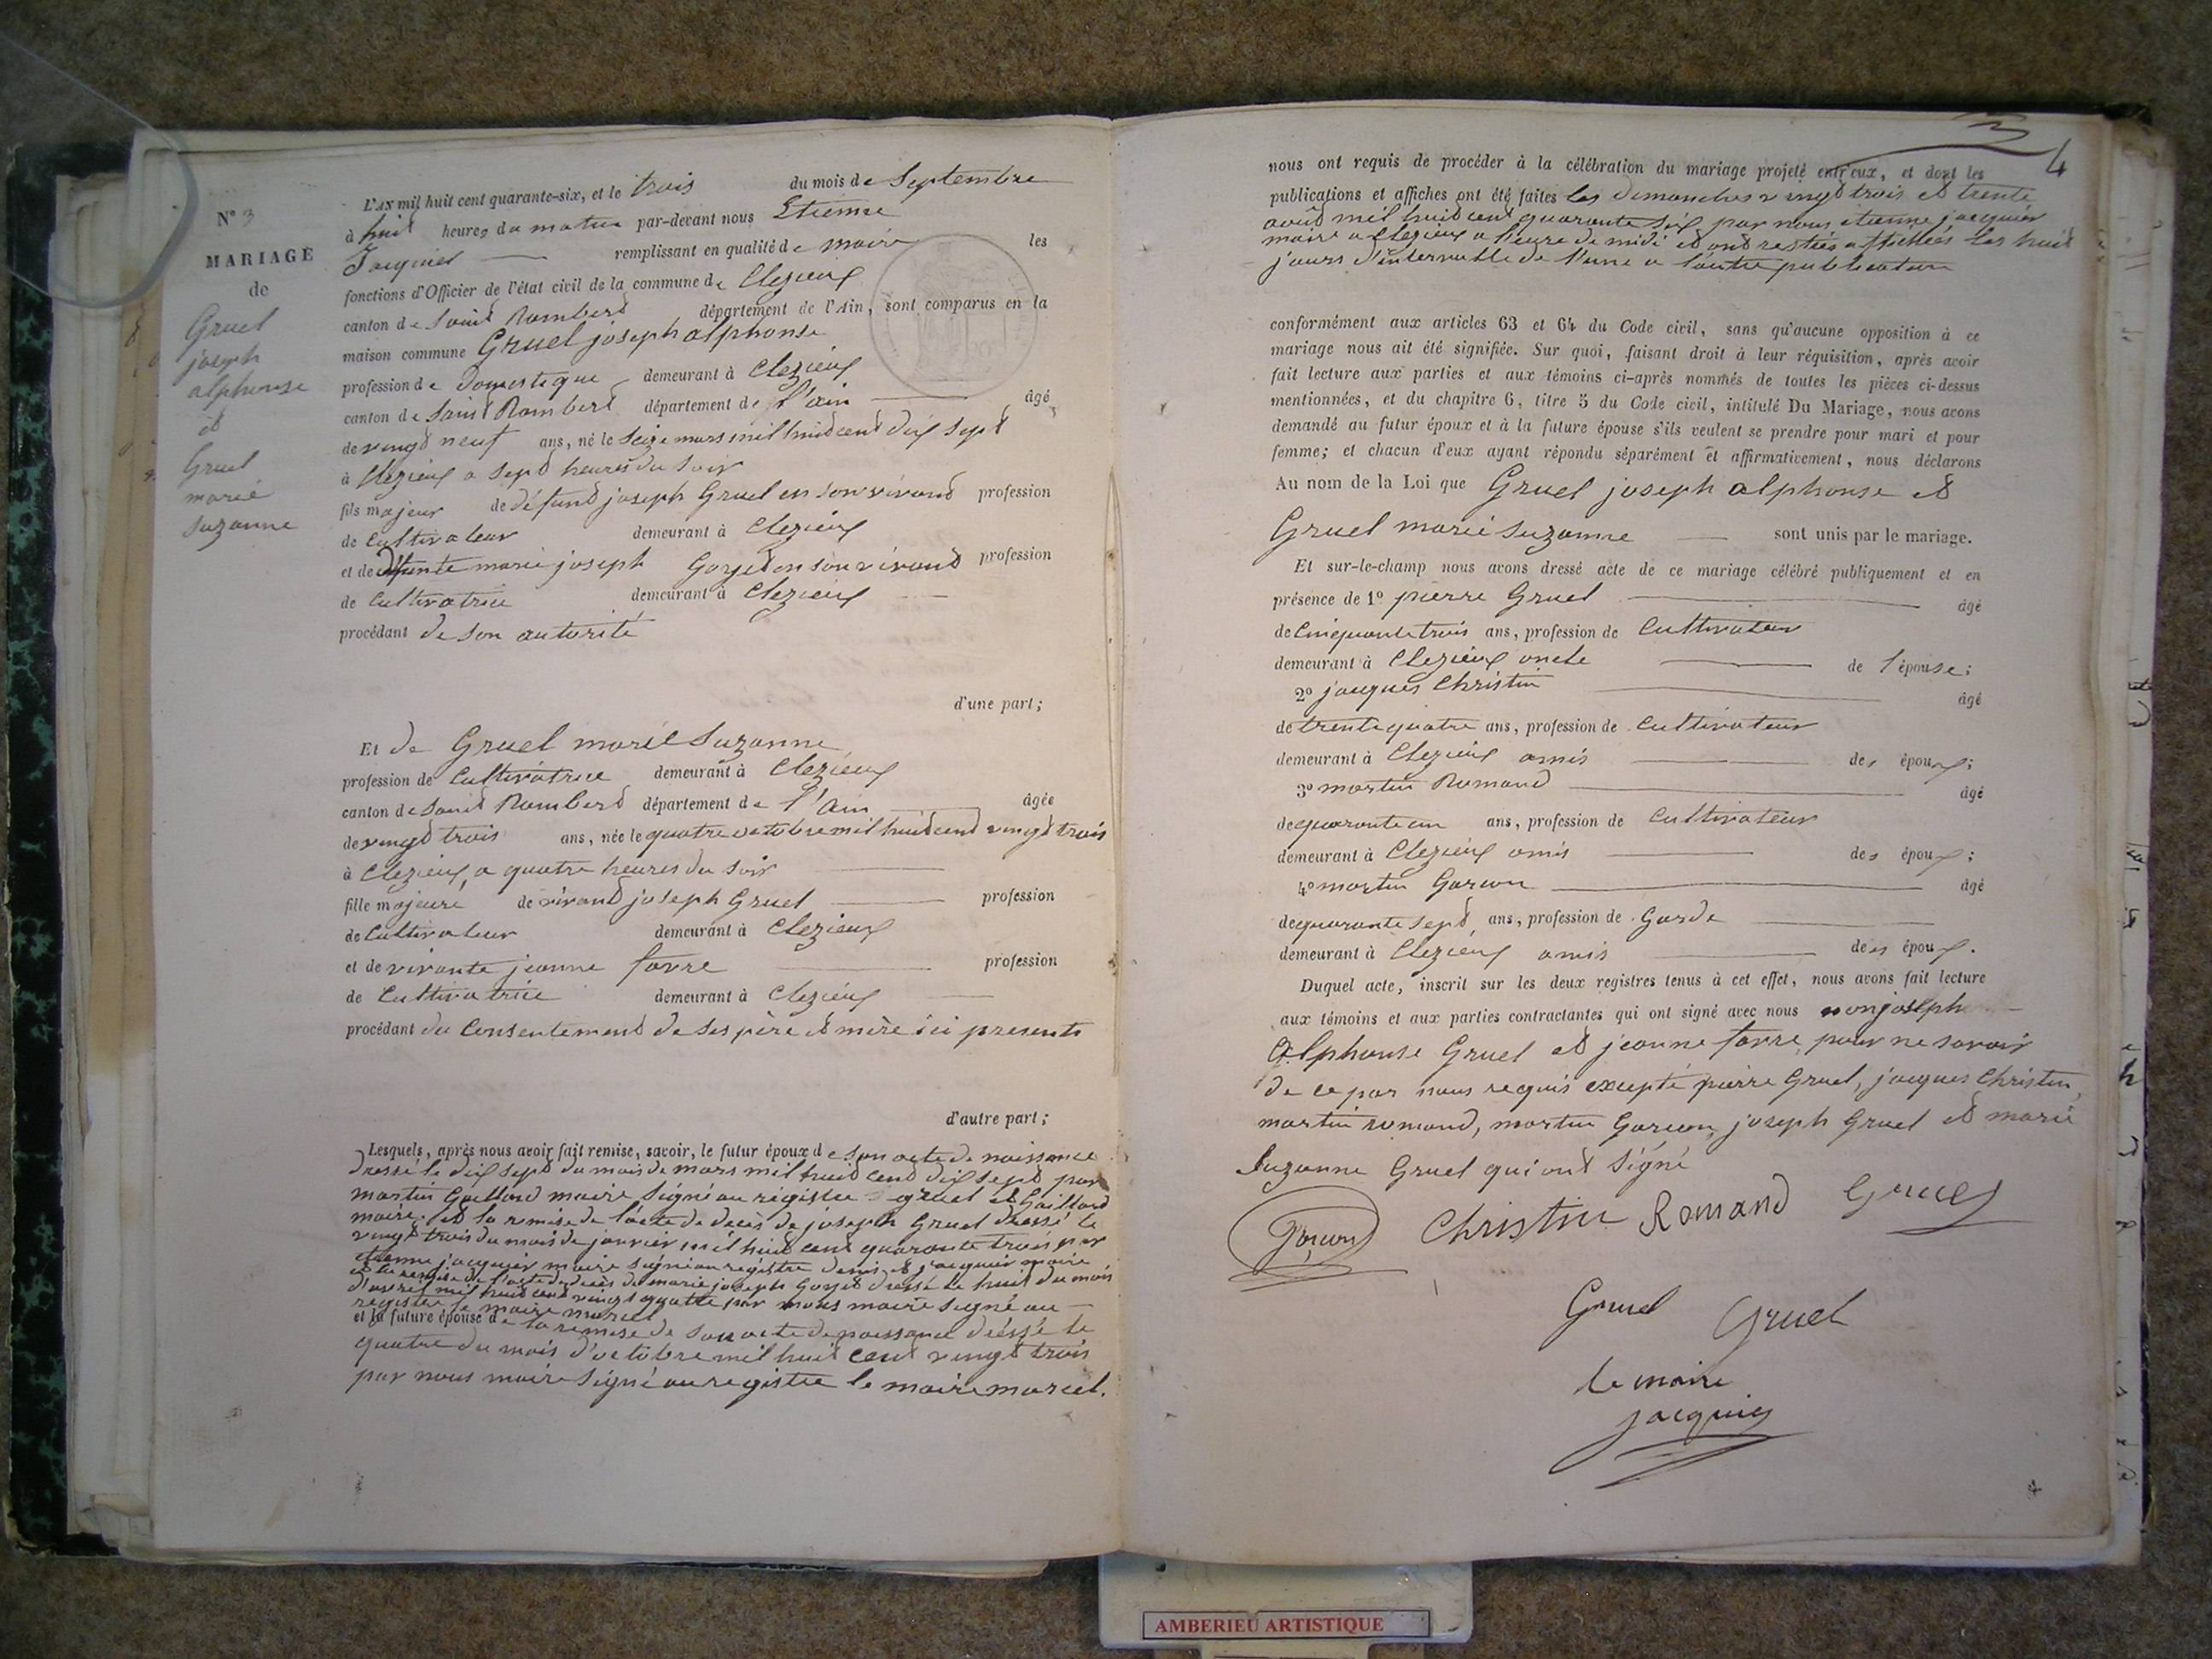 N° 3
MARIAGE
de
Gruel
joseph
alphonse
et
Gruel
marie
suzanne
L'AN mil huit cent quarante-six, et le trois du mois de Septembre
à huit heures du matin par-devant nous Etienne
Jacquier remplissant en qualité de maire les
fonctions d'Officier de l'état civil de la commune de Clezieux
canton de Saint Rambert département de l'Ain, sont comparus en la
maison commune Gruel joseph alphonse
profession de Domestique demeurant à Clezieux
canton de Saint Rambert département de l'ain âgé
de vingt neuf ans, né le Seize mars mil huit cent dix sept
à Clezieux a sept heures du Soir
fils majeur de défunt joseph Gruel en son vivant profession
de Cultivateur demeurant à Clezieux
et de défunte marie joseph Gorjet en son vivant profession
de Cultivatrice demeurant à Clezieux
procédant de son autorité
d'une part;
Et de Gruel marie Suzanne
profession de Cultivatrice demeurant à Clezieux
canton de Saint Rambert département de l'Ain âgée
de vingt trois ans, née le quatre octobre mil huit cent vingt trois
à Clezieux, a quatre heures du Soir
fille majeure de vivant joseph Gruel profession
de Cultivateur demeurant à Clezieux
et de vivante jeanne favre profession
de Cultivatrice demeurant à Clezieux
procédant du Consentement de ses père et mère ici presents
d'autre part;
Lesquels, après nous avoir fait remise, savoir, le futur époux de son acte de naissance
dressé le dix sept du mois de mars mil huit cent dix sept par
martin Gaillard maire Signé au régistre gruel et Gaillard
maire. et la remise de l'acte de decès de joseph Gruel dressé le
vingt trois du mois de janvier mil huit cent quarante trois par
etienne jacquier maire signé au registre denis et jacquier maire
et la remise de l'acte de decès de marie joseph Gorjet dressé le huit du mois
d'avril mil huit cent vingt quatre par nous maire signé au
registre le maire marcel
et la future épouse de la remise de son acte de naissance dréssé le
quatre du mois d'octobre mil huit cent vingt trois
par nous maire Signé au registre le maire marcel.
4
nous ont requis de procéder à la célébration du mariage projeté entr'eux, et dont les
publications et affiches ont été faites les dimanches vingt trois et trente
août mil huit cent quarante six par nous etienne jacquier
maire a Clezieux a l'heure de midi et ont restées affichées les huit
jours d'intervalle de l'une a l'autre publication
conformément aux articles 63 et 64 du Code civil, sans qu'aucune opposition à ce
mariage nous ait été signifiée. Sur quoi, faisant droit à leur réquisition, après avoir
fait lecture aux parties et aux témoins ci-après nommés de toutes les pièces ci-dessus
mentionnées, et du chapitre 6, titre 5 du Code civil, intitulé Du Mariage, nous avons
demandé au futur époux et à la future épouse s'ils veulent se prendre pour mari et pour
femme; et chacun d'eux ayant répondu séparément et affirmativement, nous déclarons
Au nom de la Loi que Gruel joseph alphonse et
Gruel marie Suzanne sont unis par le mariage.
Et sur-le-champ nous avons dressé acte de ce mariage célébré publiquement et en
présence de 1° pierre Gruel âgé
de Cinquante trois ans, profession de Cultivateur
demeurant à Clezieux oncle de l'épouse;
2° jacques Christin âgé
de trente quatre ans, profession de Cultivateur
demeurant à Clezieux amis des époux;
3° martin Romand âgé
de quarante un ans, profession de Cultivateur
demeurant à Clezieux amis des époux;
4° martin Garcon âgé
de quarante sept ans, profession de Garde
demeurant à Clezieux amis des époux.
Duquel acte, inscrit sur les deux registres tenus à cet effet, nous avons fait lecture
aux témoins et aux parties contractantes qui ont signé avec nous non joseph
Alphonse Gruel et jeanne favre, pour ne savoir
de ce par nous requis excepté pierre Gruel, jacques Christin,
martin romand, martin Garcon, joseph Gruel et marie
Suzanne Gruel qui ont Signé
Garcon Christin Romand Gruel
Gruel Gruel
le maire
jacquier
AMBERIEU ARTISTIQUE